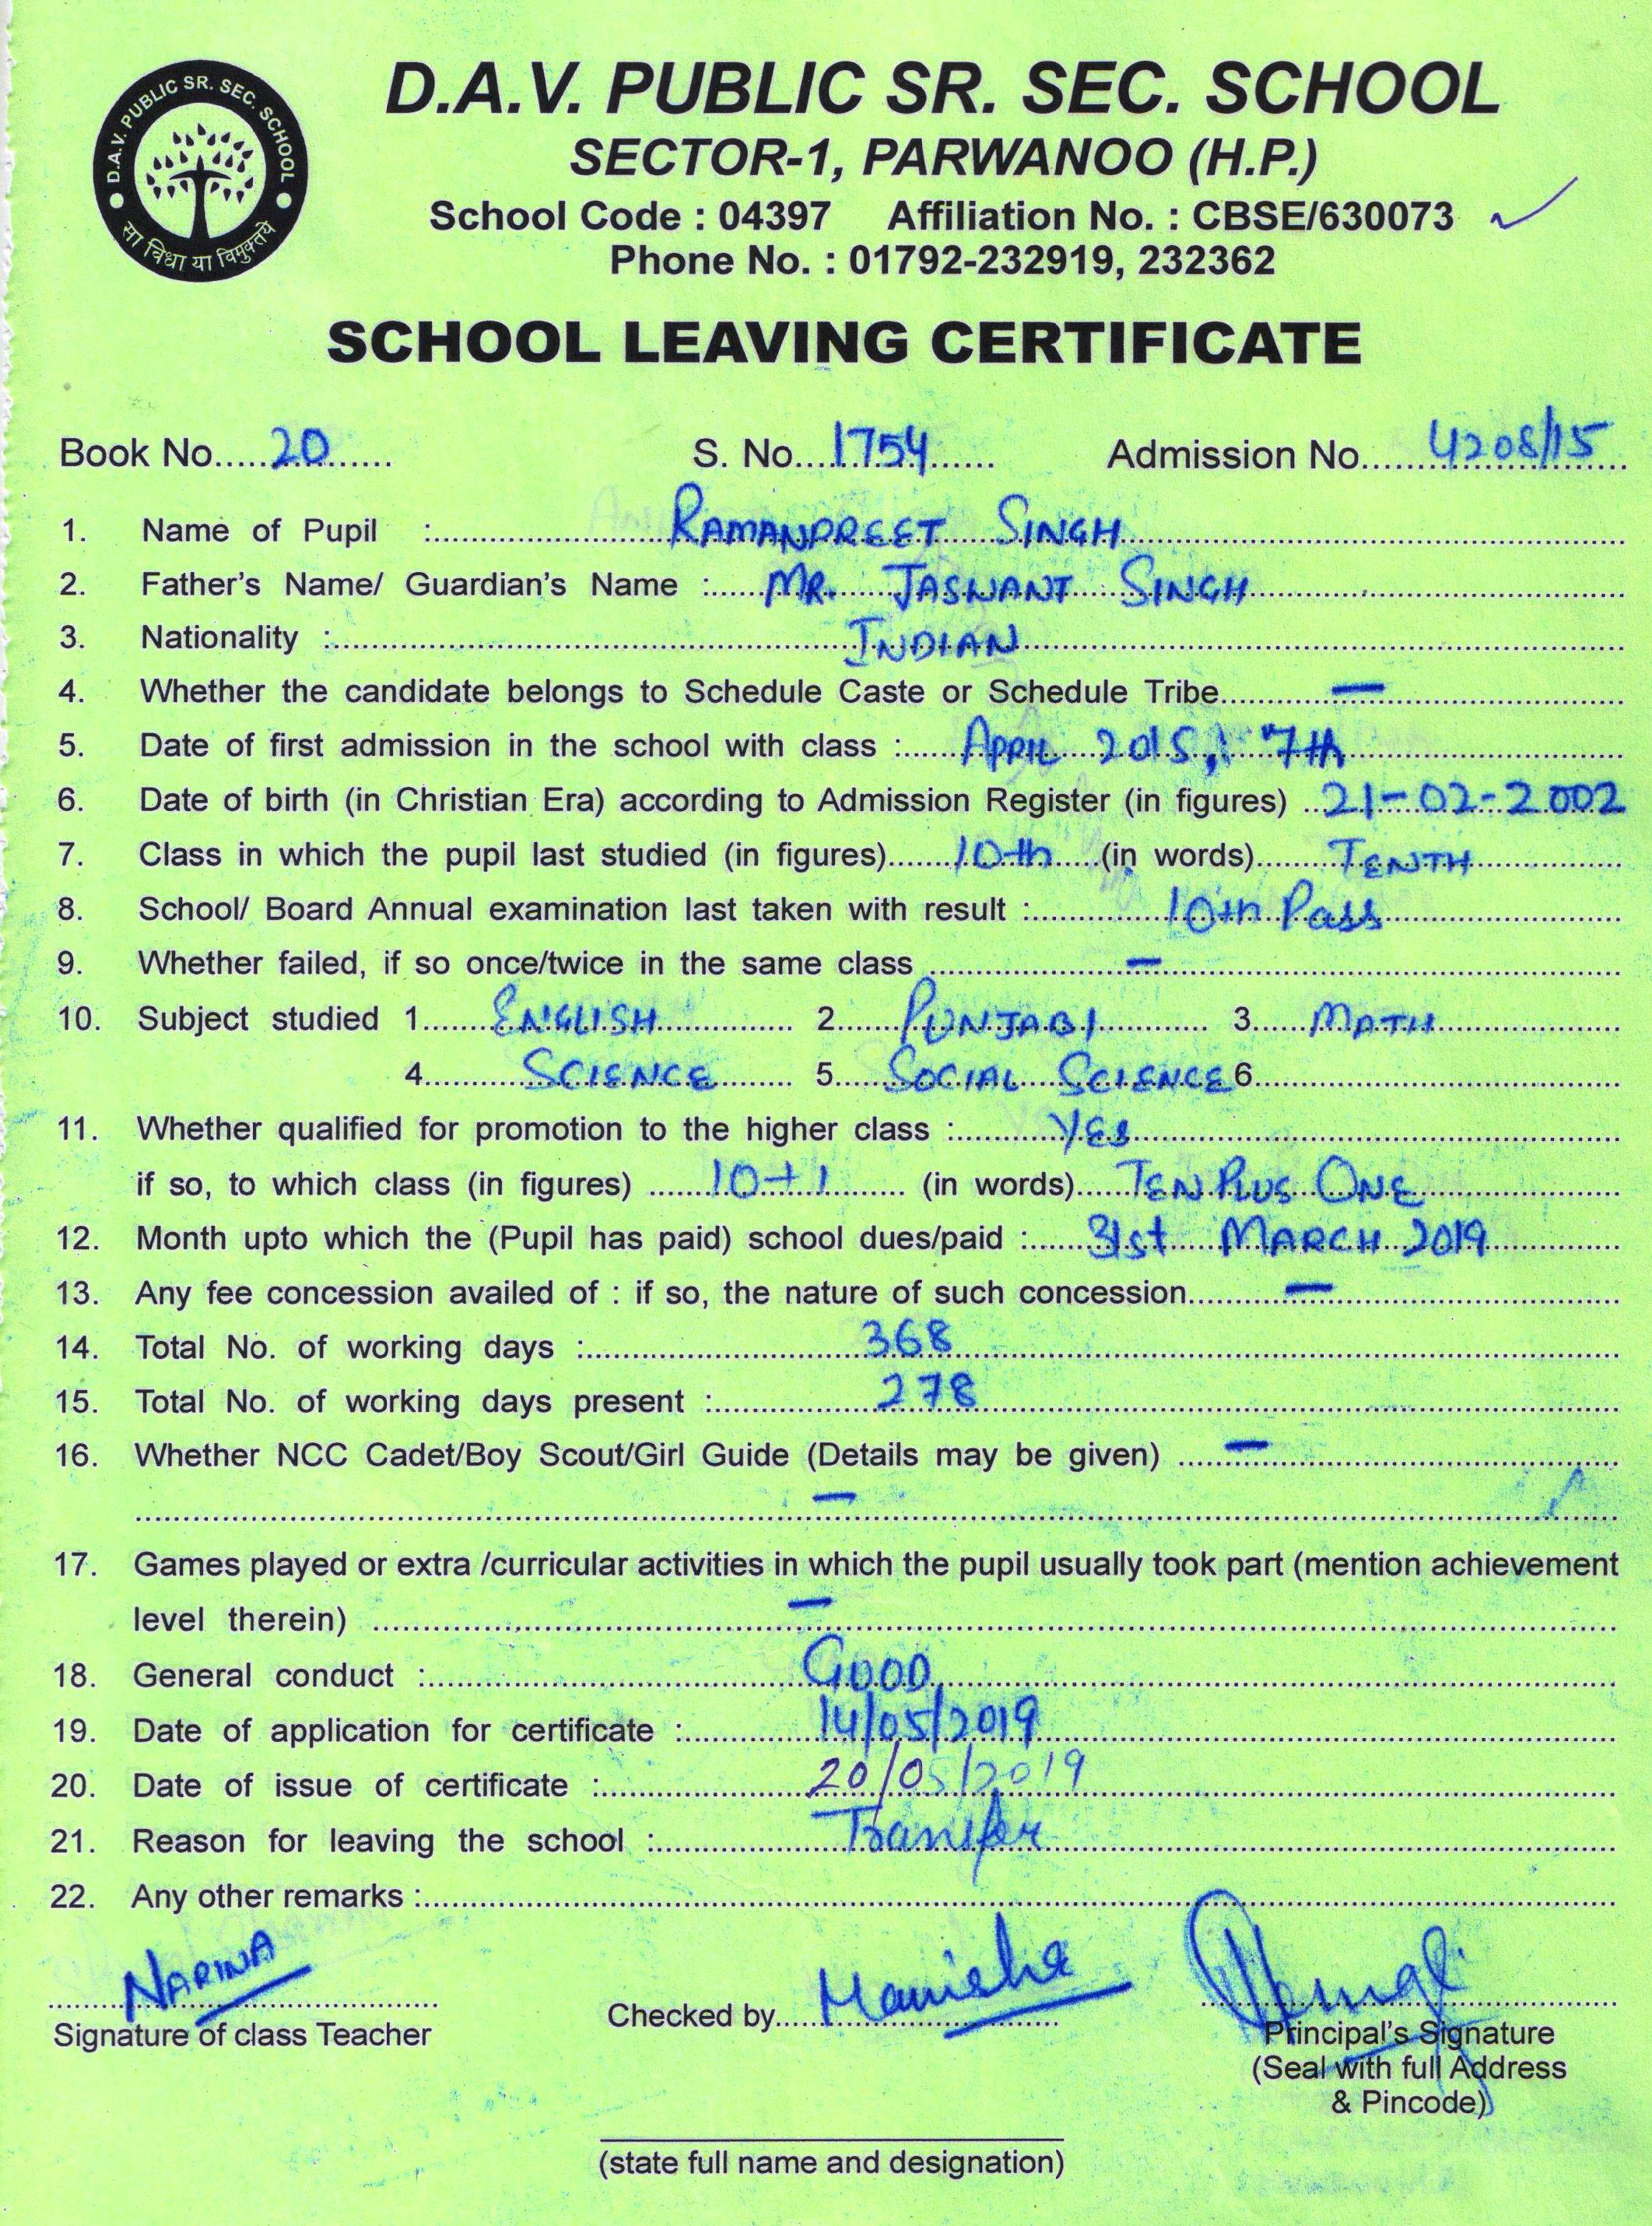 D.A.V. PUBLIC SR. SEC. SCHOOL
सा विद्या या विमुक्तये
D.A.V. PUBLIC SR. SEC. SCHOOL
SECTOR-1, PARWANOO (H.P.)
School Code : 04397 Affiliation No. : CBSE/630073
Phone No. : 01792-232919, 232362
SCHOOL LEAVING CERTIFICATE
Book No. 20 S. No. 1754 Admission No. 4208/15
1. Name of Pupil : RAMANPREET SINGH
2. Father's Name/ Guardian's Name : MR. JASWANT SINGH
3. Nationality : INDIAN
4. Whether the candidate belongs to Schedule Caste or Schedule Tribe —
5. Date of first admission in the school with class : APRIL 2015, 7th
6. Date of birth (in Christian Era) according to Admission Register (in figures) 21-02-2002
7. Class in which the pupil last studied (in figures) 10th (in words) TENTH
8. School/ Board Annual examination last taken with result : 10th Pass
9. Whether failed, if so once/twice in the same class —
10. Subject studied 1. ENGLISH 2. PUNJABI 3. MATH
4. SCIENCE 5. SOCIAL SCIENCE 6.
11. Whether qualified for promotion to the higher class : YES
if so, to which class (in figures) 10+1 (in words) TEN PLUS ONE
12. Month upto which the (Pupil has paid) school dues/paid : 31st MARCH 2019
13. Any fee concession availed of : if so, the nature of such concession —
14. Total No. of working days : 368
15. Total No. of working days present : 278
16. Whether NCC Cadet/Boy Scout/Girl Guide (Details may be given) —
—
17. Games played or extra /curricular activities in which the pupil usually took part (mention achievement
level therein) —
18. General conduct : GOOD
19. Date of application for certificate : 14/05/2019
20. Date of issue of certificate : 20/05/2019
21. Reason for leaving the school : Transfer
22. Any other remarks :
NARINA
Signature of class Teacher
Checked by Manisha
Principal's Signature
(Seal with full Address
& Pincode)
(state full name and designation)